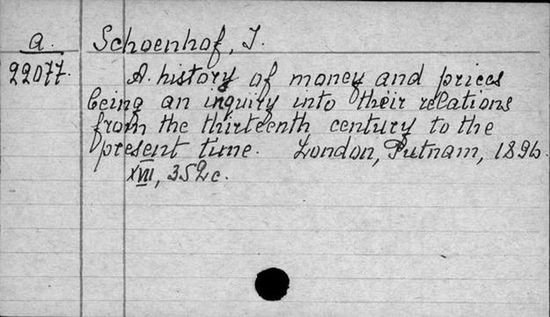 a.
22077.
Schoenhof, J.
A history of money and prices
being an inquiry into their relations
from the thirteenth century to the
present time. London, Putnam, 1896.
XVIII, 352c.